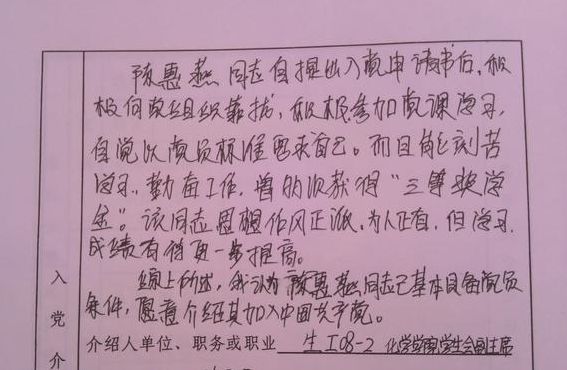 陈惠燕同志自提出入党申请书后，积
极向党组织靠拢，积极参加党课学习，
自觉以党员标准要求自己。而且能刻苦
学习，勤奋工作，曾多次获得“三等奖学
金”。该同志思想作风正派，为人正直，但学习
成绩有待更一步提高。
综上所述，我认为陈惠燕同志已基本具备党员
条件，愿意介绍其加入中国共产党。
入
党
介
介绍人单位、职务或职业 生工08-2 化学学院学生会副主席